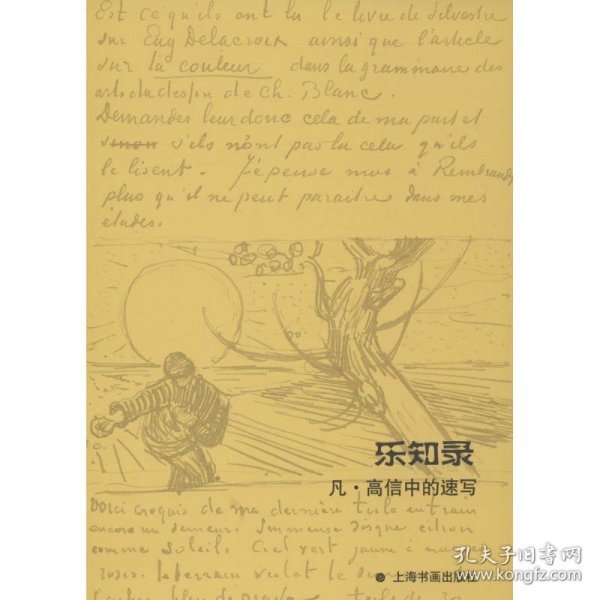 Est ce qu'ils ont lu le livre de Silvestre
sur Eug Delacroix ainsi que l'article
sur la couleur dans la grammaire des
arts du dessin de Ch. Blanc.
Demandes leur donc cela de ma part et
sinon s'ils n'ont pas lu cela qu'ils
le lisent. J'epense moi à Rembrandt
plus qu'il ne peut paraitre dans mes
études.
乐知录
凡·高信中的速写
Voici croquis de ma dernière toile en train
encore un semeur. Immense disque citron
comme soleil. Ciel vert jaune à nuages
roses. le terrain violet le
上海书画出版社
孔夫子旧书网
www.kongfz.com